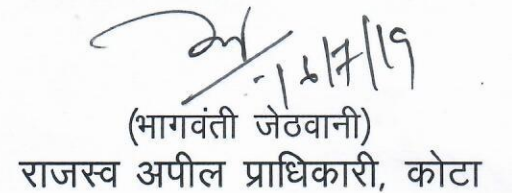 16/7/19
(भागवंती जेठवानी)
राजस्व अपील प्राधिकारी, कोटा